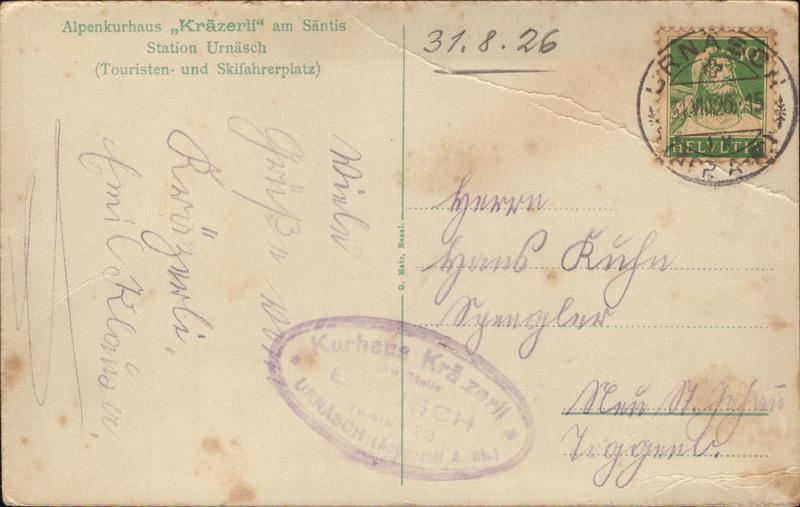 Alpenkurhaus „Kräzerli" am Säntis
Station Urnäsch
(Touristen- und Skifahrerplatz)
31.8.26
10
HELVETIA
URNÄSCH
31.VIII.26.-15
Viele
Grüße vom
Kräzerli,
Emil
G. Metz, Basel.
Herrn
Hans Kuhn
Spengler
Neu St. Johann
Toggenb.
* Kurhaus Kräzerli *
URNÄSCH (Appenzell A. Rh.)